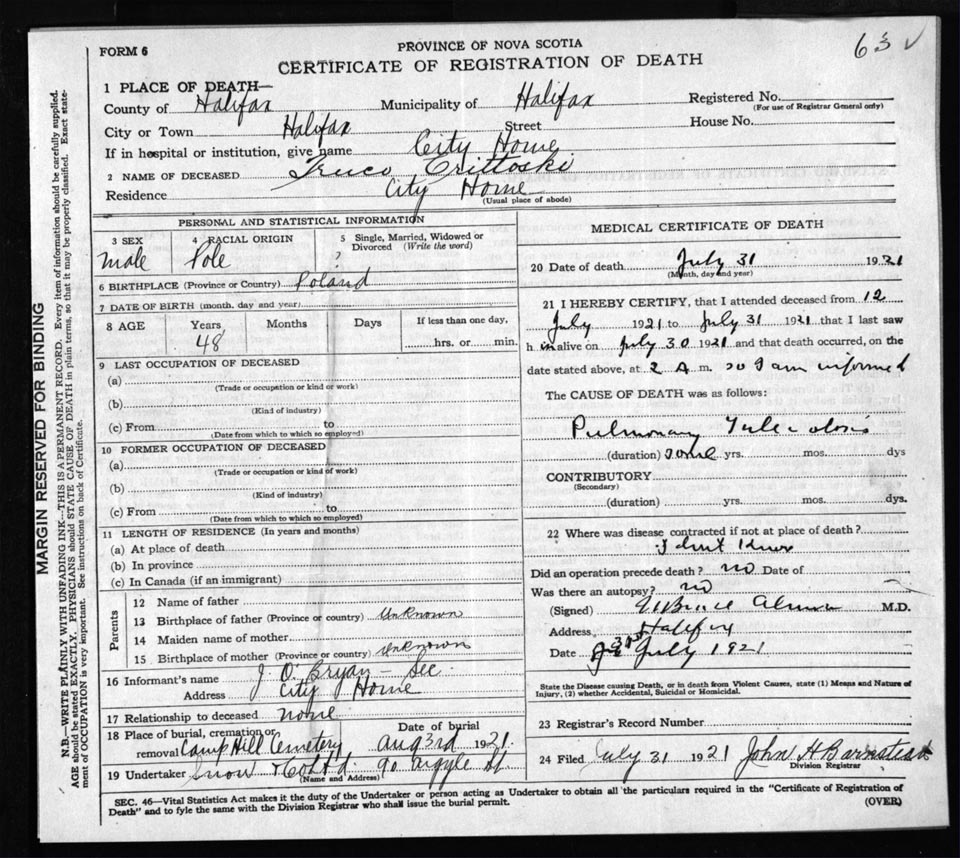 63 ✓
FORM 6
PROVINCE OF NOVA SCOTIA
CERTIFICATE OF REGISTRATION OF DEATH
1 PLACE OF DEATH—
County of Halifax Municipality of Halifax Registered No.
(For use of Registrar General only)
City or Town Halifax Street House No.
If in hospital or institution, give name City Home
2 NAME OF DECEASED
Residence City Home
(Usual place of abode)
PERSONAL AND STATISTICAL INFORMATION
3 SEX 4 RACIAL ORIGIN 5 Single, Married, Widowed or Divorced (Write the word)
male Pole ?
6 BIRTHPLACE (Province or Country) Poland
7 DATE OF BIRTH (month, day and year)
8 AGE Years Months Days If less than one day,
48 hrs. or min.
9 LAST OCCUPATION OF DECEASED
(a)
(Trade or occupation or kind of work)
(b)
(Kind of industry)
(c) From to
(Date from which to which so employed)
10 FORMER OCCUPATION OF DECEASED
(a)
(Trade or occupation or kind of work)
(b)
(Kind of industry)
(c) From to
(Date from which to which so employed)
11 LENGTH OF RESIDENCE (In years and months)
(a) At place of death
(b) In province
(c) In Canada (if an immigrant)
Parents
12 Name of father
13 Birthplace of father (Province or country) Unknown
14 Maiden name of mother
15 Birthplace of mother (Province or country) Unknown
16 Informant's name J. O'Bryan — Sec.
Address City Home
17 Relationship to deceased none
18 Place of burial, cremation or removal Camp Hill Cemetery Date of burial Aug 3rd 1921
19 Undertaker Snow & Co Ltd. 90 Argyle St.
(Name and Address)
MEDICAL CERTIFICATE OF DEATH
20 Date of death July 31 1921
(Month, day and year)
21 I HEREBY CERTIFY, that I attended deceased from 12
July 1921 to July 31 1921 that I last saw
h im alive on July 30 1921 and that death occurred, on the
date stated above, at 2 A m. so I am informed
The CAUSE OF DEATH was as follows:
Pulmonary Tuberculosis
(duration) some yrs. mos. dys
CONTRIBUTORY
(Secondary)
(duration) yrs. mos. dys.
22 Where was disease contracted if not at place of death?
I dont know
Did an operation precede death? no Date of
Was there an autopsy? no
(Signed) Bruce Almon M.D.
Address Halifax
Date July 1921
State the Disease causing Death, or in death from Violent Causes, state (1) Means and Nature of
Injury, (2) whether Accidental, Suicidal or Homicidal.
23 Registrar's Record Number
24 Filed July 31 1921 John H Barnstead
Division Registrar
SEC. 46—Vital Statistics Act makes it the duty of the Undertaker or person acting as Undertaker to obtain all the particulars required in the "Certificate of Registration of
Death" and to fyle the same with the Division Registrar who shall issue the burial permit.
(OVER)
MARGIN RESERVED FOR BINDING
N.B.—WRITE PLAINLY WITH UNFADING INK—THIS IS A PERMANENT RECORD. Every item of information should be carefully supplied.
AGE should be stated EXACTLY. PHYSICIANS should STATE CAUSE OF DEATH in plain terms, so that it may be properly classified. Exact state-
ment of OCCUPATION is very important. See instructions on back of Certificate.